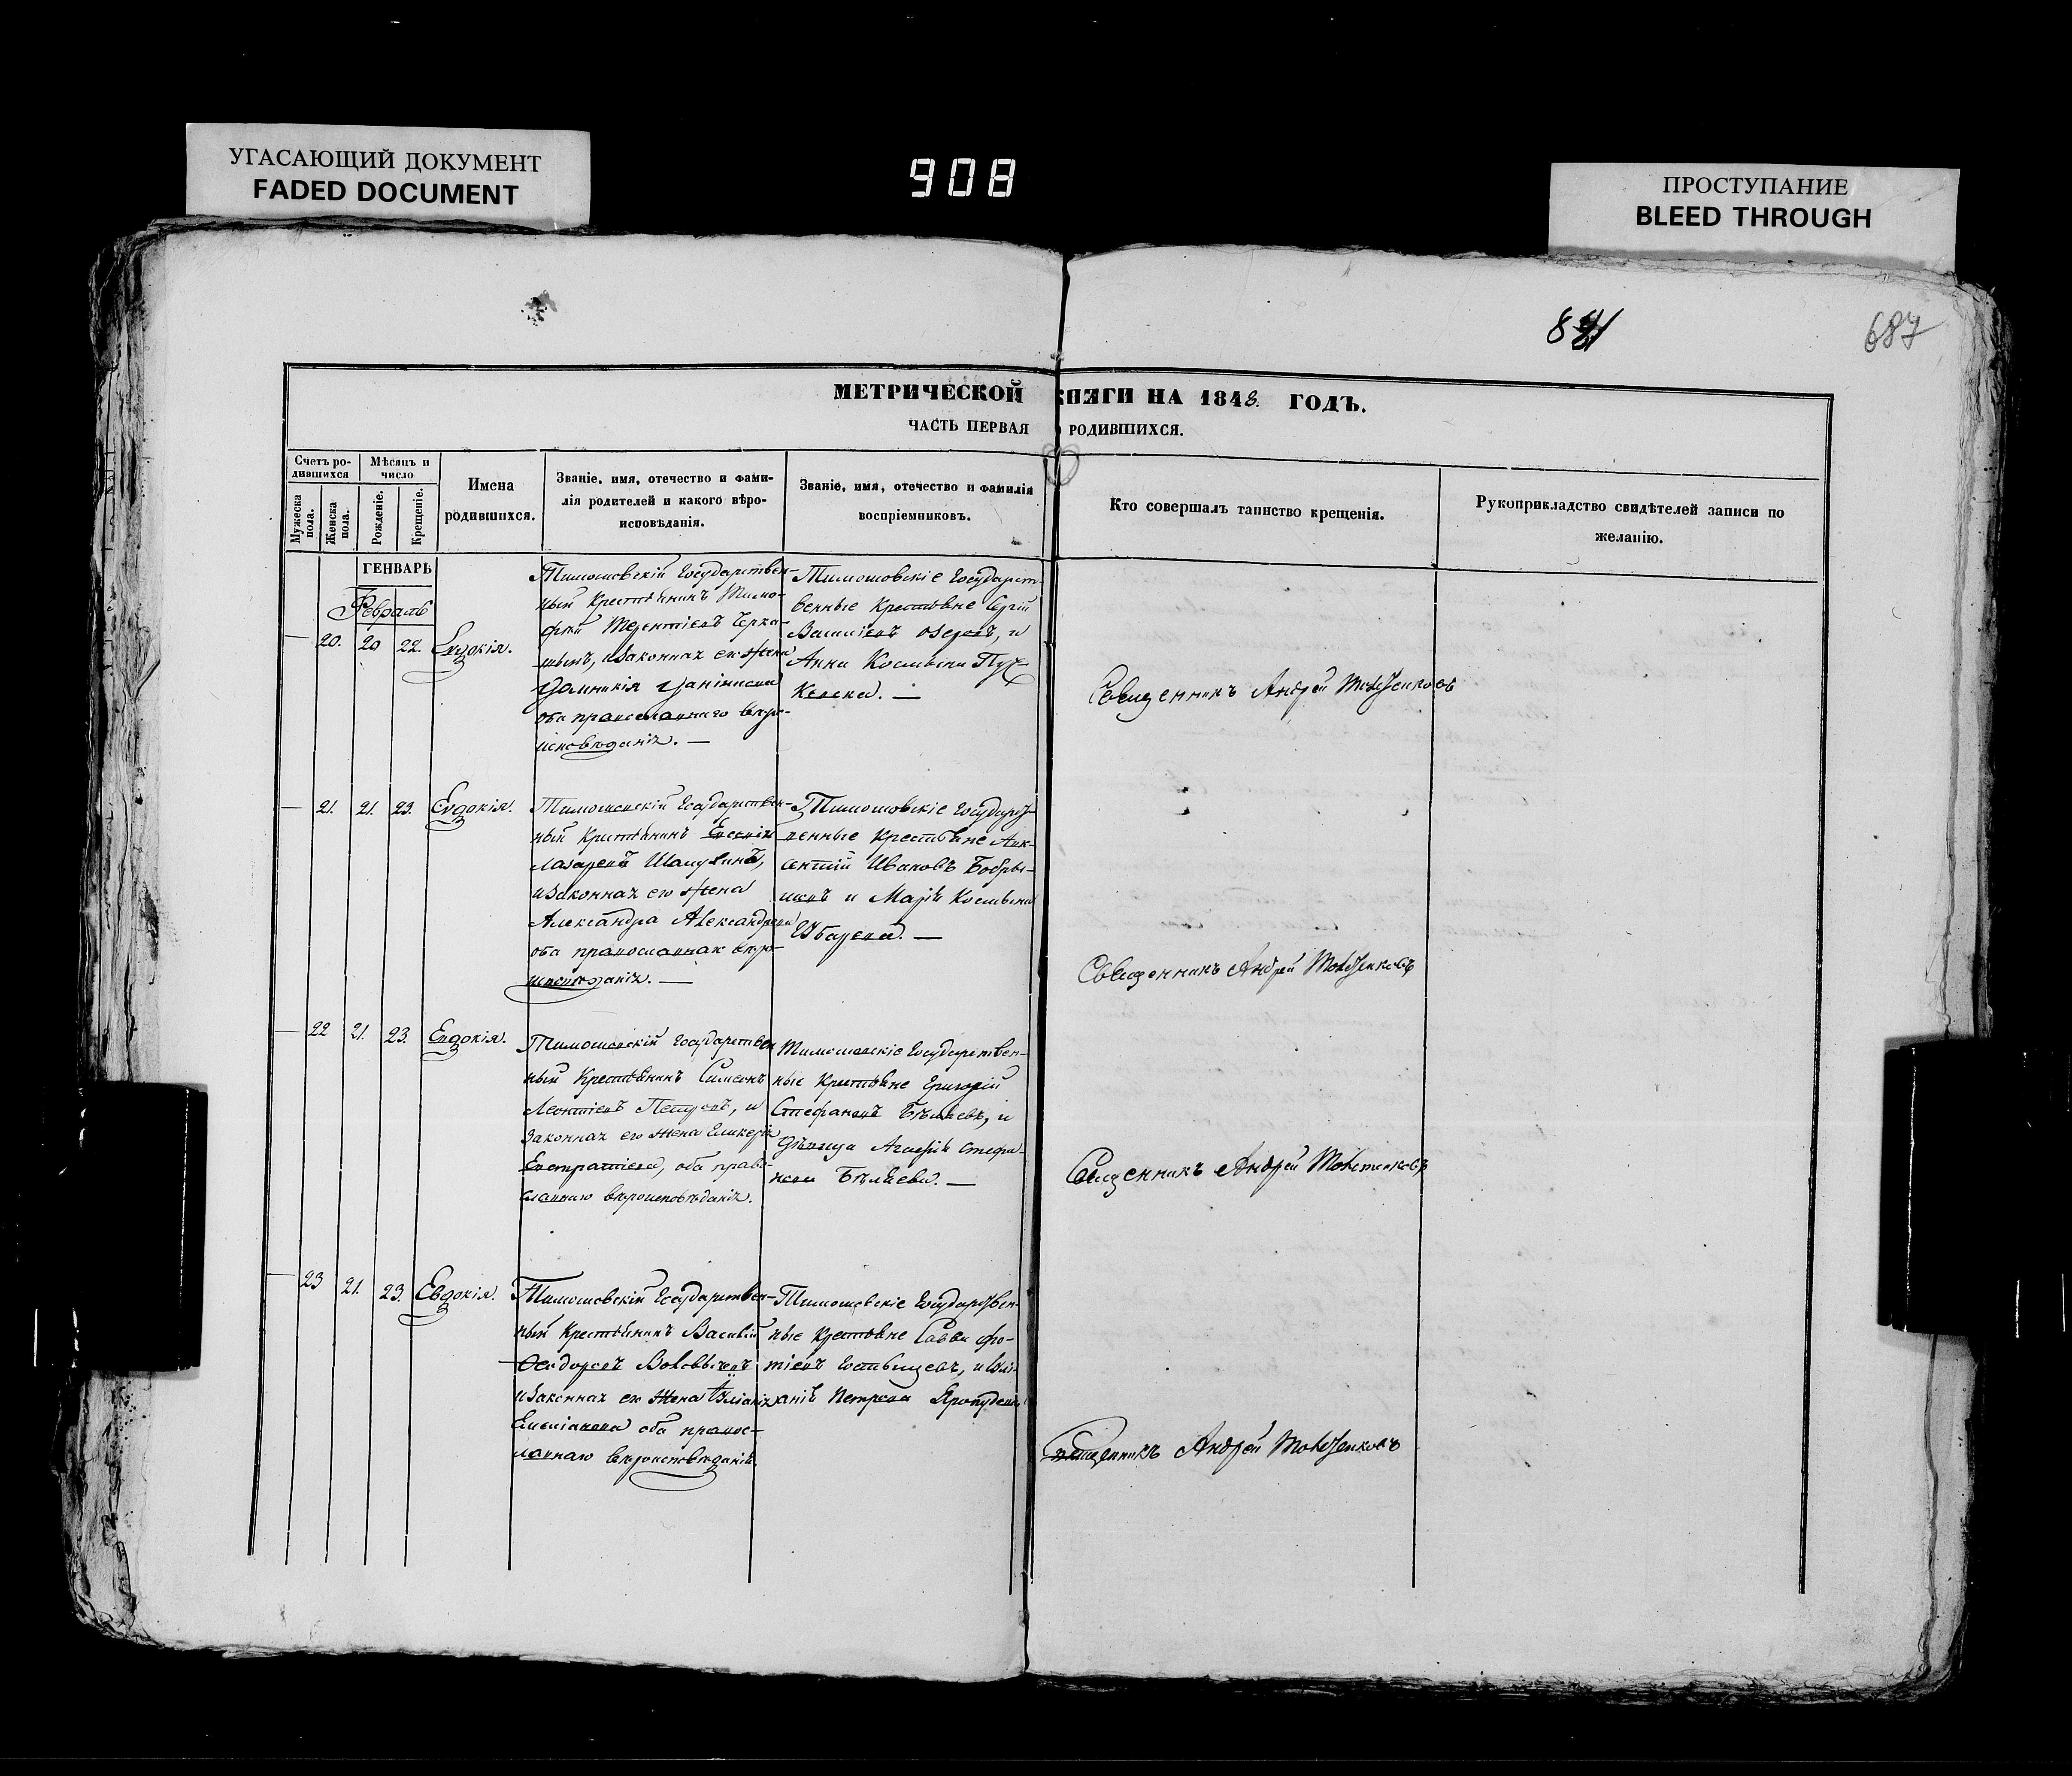 УГАСАЮЩИЙ ДОКУМЕНТ
FADED DOCUMENT
908
ПРОСТУПАНИЕ
BLEED THROUGH
687
МЕТРИЧЕСКОЙ КНИГИ НА 1848. ГОДЪ.
ЧАСТЬ ПЕРВАЯ О РОДИВШИХСЯ.
Счетъ ро-
дившихся
Мѣсяцъ и
число
Мужеска
пола.
Женска
пола.
Рожденіе.
Крещеніе.
Имена
родившихся.
Званіе, имя, отечество и фами-
лія родителей и какого вѣро-
исповѣданія.
Званіе, имя, отечество и фамилія
воспріемниковъ.
Кто совершалъ таинство крещенія.
Рукоприкладство свидѣтелей записи по
желанію.
ГЕНВАРЬ
Февраль
— 20. 20 22. Евдокія.
Тимошовскій Государствен-
ный Крестьянинъ Тимо-
фей Терентіевъ Черка-
шинъ, и законная его жена
оба православнаго вѣро-
исповѣданія. —
Тимошовскіе Государст
венные Крестьяне Сергій
Василіевъ Озеровъ, и
Анна Космина Пуч-
кова. —
Священникъ Андрей
— 21. 21. 23. Евдокія.
Тимошевскій Государствен-
ный Крестьянинъ Евсевій
Лазаревъ
и законная его жена
Александра Александрова
оба православнаго вѣро-
исповѣданія. —
Тимошовскіе Государст-
венные Крестьяне Авк-
сентій Ивановъ Бобры-
шевъ и Марія Космина
Убарева. —
Священникъ Андрей
— 22 21. 23. Евдокія.
Тимошевскій Государствен
ный Крестьянинъ Симеонъ
Леонтіевъ Петровъ, и
законная его жена Гликерія
Евстратіева, оба право-
славнаго вѣроисповѣданія.
Тимошевскіе Государствен-
ные Крестьяне Григорій
Стефановъ Бѣляевъ, и
дѣвица Агафія Стефа-
нова Бѣляева. —
Священникъ Андрей
— 23 21. 23. Евдокія.
Тимошевскій Государствен-
ный Крестьянинъ Василій
Ѳеодоровъ
и законная его жена Іуліанія
Емеліанова оба правос-
лавнаго вѣроисповѣданія.
Тимошевскіе Государствен-
ные Крестьяне Савва Фо-
тіевъ Гостищевъ, и Іулі-
анія Петрова
Священникъ Андрей